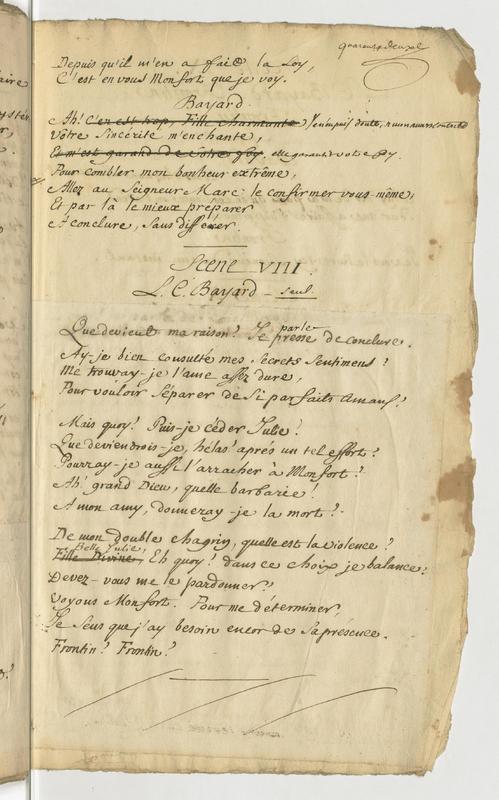 quarante deuxe
Depuis qu'il m'en a fait la Loy,
C'est en vous Monfort que je voy.
Bayard.
Ah! C'en est trop, Fille charmante
Vôtre Sincérité m'enchante,
Et m'est garand de votre foy. elle garantit votre foy.
Pour combler mon bonheur extrême,
Allez au Seigneur Marc le confirmer vous-même,
Et par là le mieux préparer
A conclure, sans différer.
Scene VIII.
L. C. Bayard - seul
Que devient ma raison? Je presse de conclure.
parle
Ay-je bien consulté mes Secrets Sentimens?
Me trouvay-je l'ame assez dure,
Pour vouloir Séparer de Si parfaits Amans?
Mais quoy! Puis-je céder Julie!
Que deviendrois-je, hélas! aprés un tel effort?
Pourray-je aussi l'arracher à Monfort?
Ah! grand Dieu, quelle barbarie!
A mon amy, donneray-je la mort?
De mon double chagrin, quelle est la violence?
Belle Julie,
Fille Divine, Eh quoy! dans ce choix je balance?
Devez-vous me le pardonner?
Voyons Monfort. Pour me déterminer,
Je Sens que j'ay besoin encor de Sa présence.
Frontin? Frontin?